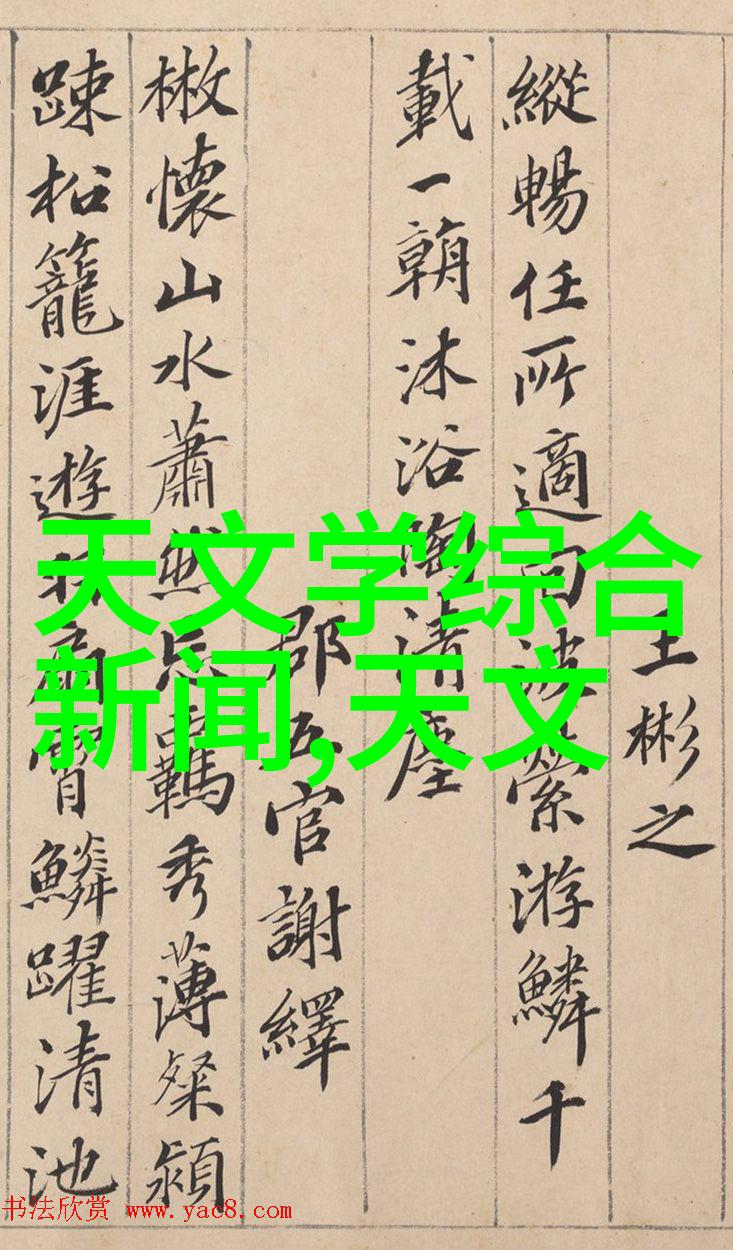 王彬之
縱暢任所適回波縈游鱗千
載一朝沐浴陶清塵
郡五官謝繹
散懷山水蕭然忘羈秀薄粲穎
踈松籠涯遊羽扇霄鱗躍清池
天文学综合
新闻,天文
书法欣赏 www.yac8.com